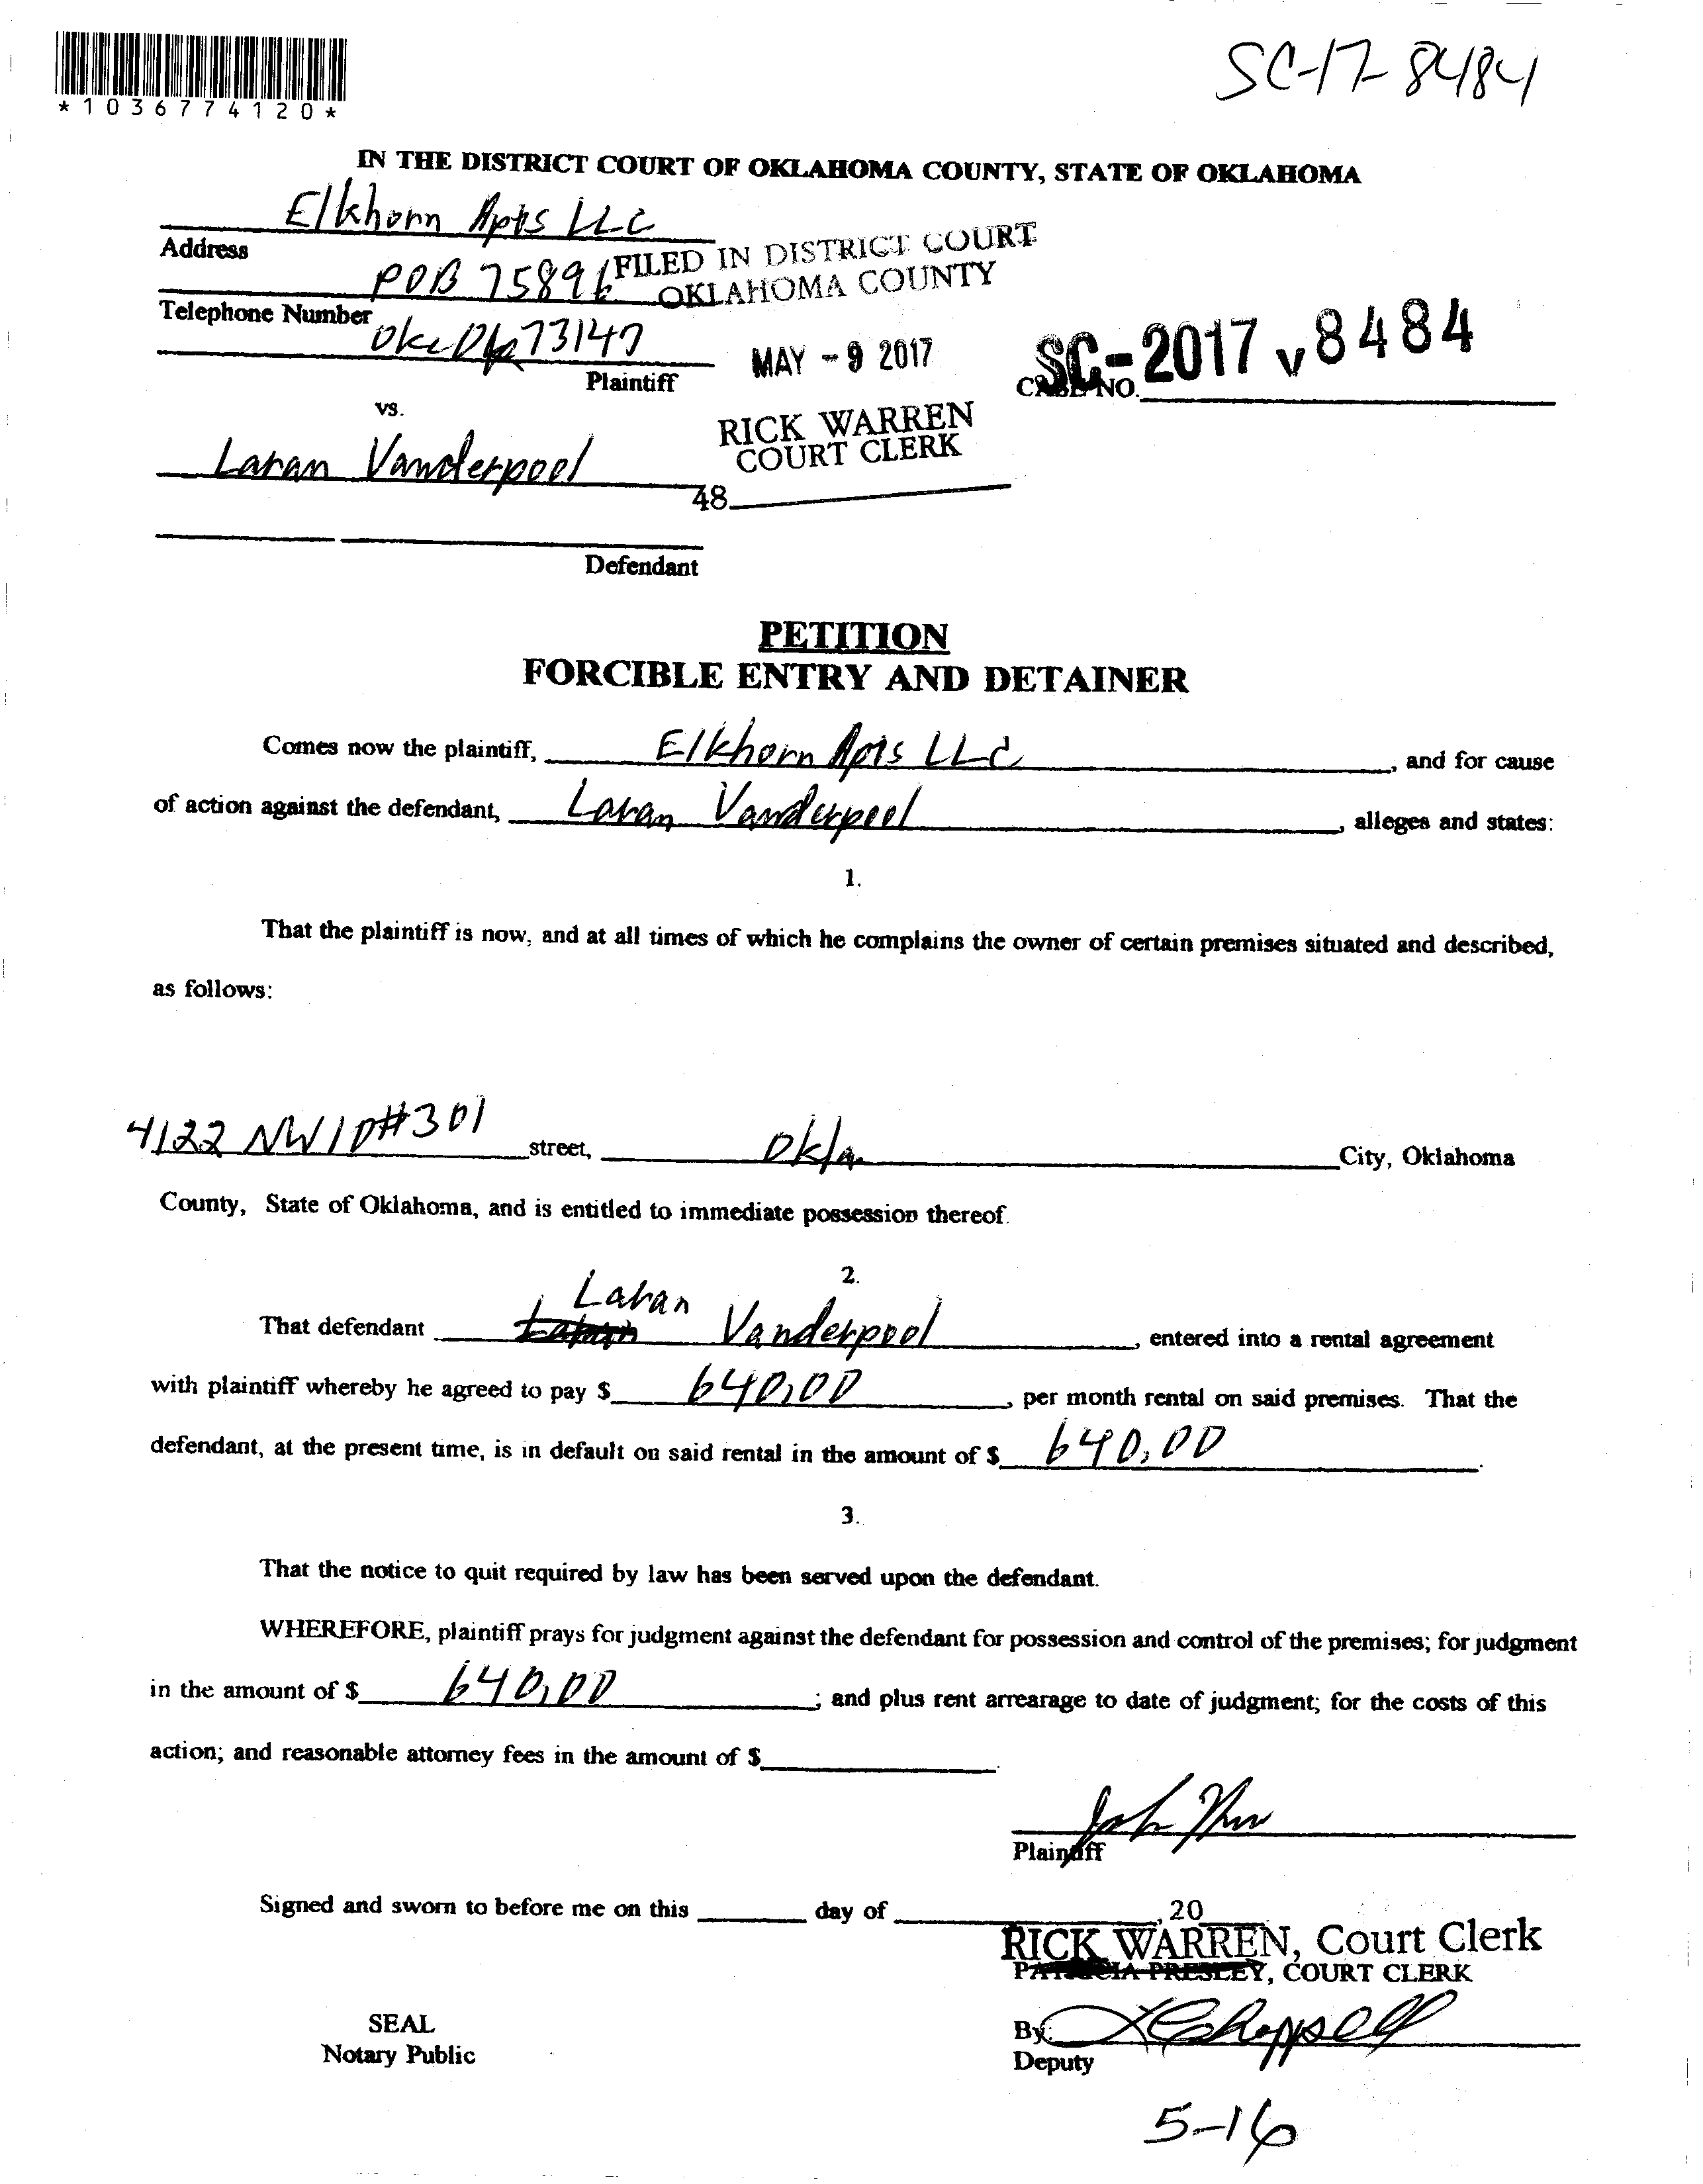 *1036774120*
SC-17-8484
IN THE DISTRICT COURT OF OKLAHOMA COUNTY, STATE OF OKLAHOMA
Elkhorn Apts LLC
Address
POB 75896
FILED IN DISTRICT COURT
OKLAHOMA COUNTY
Telephone Number
Okc Okla 73147
Plaintiff
MAY - 9 2017
SC-2017 v 8484
CASE NO.
vs.
RICK WARREN
COURT CLERK
Laran Vanderpool
48
Defendant
PETITION
FORCIBLE ENTRY AND DETAINER
Comes now the plaintiff, Elkhorn Apts LLC, and for cause
of action against the defendant, Laran Vanderpool, alleges and states:
1.
That the plaintiff is now, and at all times of which he complains the owner of certain premises situated and described,
as follows:
4122 NW 10 #301 street, Okla City, Oklahoma
County, State of Oklahoma, and is entitled to immediate possession thereof.
2.
Laran
That defendant Vanderpool, entered into a rental agreement
with plaintiff whereby he agreed to pay $ 640.00, per month rental on said premises. That the
defendant, at the present time, is in default on said rental in the amount of $ 640.00.
3.
That the notice to quit required by law has been served upon the defendant.
WHEREFORE, plaintiff prays for judgment against the defendant for possession and control of the premises; for judgment
in the amount of $ 640.00; and plus rent arrearage to date of judgment; for the costs of this
action; and reasonable attorney fees in the amount of $
Plaintiff
Signed and sworn to before me on this day of , 20
RICK WARREN, Court Clerk
PATRICIA PRESLEY, COURT CLERK
SEAL
Notary Public
By:
Deputy
5-16